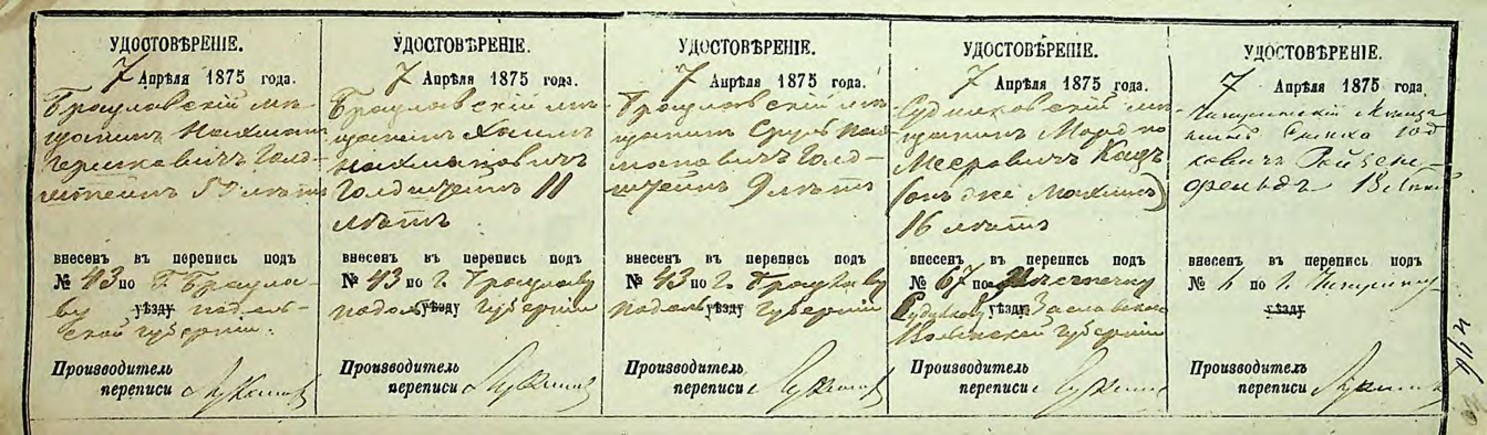 УДОСТОВѢРЕНІЕ.
7 Апрѣля 1875 года.
Брацлавскій мѣ-
щанинъ Нахманъ
Гершковичъ Голд-
штейнъ 59 лѣтъ
внесенъ въ перепись подъ
№ 43 по Г. Брацла-
ву уѣзду подоль-
ской губерніи.
Производитель
переписи
УДОСТОВѢРЕНІЕ.
7 Апрѣля 1875 года.
Брацлавскій мѣ-
щанинъ Хаимъ
Нахмановичъ
Голдштейнъ 11
лѣтъ
внесенъ въ перепись подъ
№ 43 по г. Брацлаву
подол уѣзду губерніи
Производитель
переписи
УДОСТОВѢРЕНІЕ.
7 Апрѣля 1875 года.
Брацлавскій мѣ-
щанинъ Сруль Нах-
мановичъ Голд-
штейнъ 9 лѣтъ
внесенъ въ перепись подъ
№ 43 по г. Брацлаву
подол уѣзду губерніи
Производитель
переписи
УДОСТОВѢРЕНІЕ.
7 Апрѣля 1875 года.
Судилковскій мѣ-
щанинъ Мордко
Мееровичъ Кацъ
(онъ же Махлинъ)
16 лѣтъ
внесенъ въ перепись подъ
№ 67 по мѣстечку
Судилкову уѣзду Заславскаго
Волынской губерніи
Производитель
переписи
УДОСТОВѢРЕНІЕ.
7 Апрѣля 1875 года.
Чигиринскій мѣща
нинъ
ковичъ Ройзен-
фельдъ 18 лѣтъ
внесенъ въ перепись подъ
№ по г. Чигирину
уѣзду
Производитель
переписи